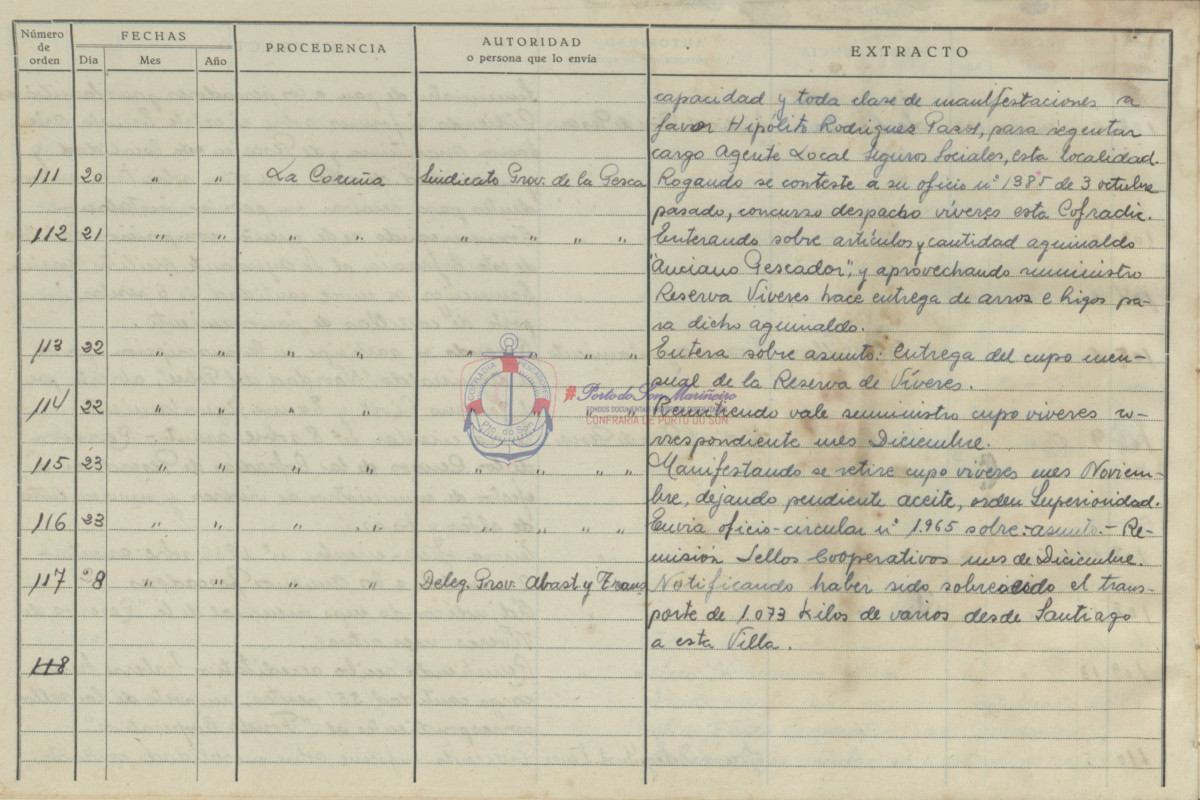 Número de orden
FECHAS
Dia Mes Año
PROCEDENCIA
AUTORIDAD
o persona que lo envía
EXTRACTO
capacidad y toda clase de manifestaciones a
favor Hipólito Rodriguez Pazos, para regentar
cargo Agente Local Seguros Sociales, esta localidad.
111 20 " " La Coruña Sindicato Prov. de la Pesca Rogando se conteste a su oficio nº 1385 de 3 octubre
pasado, concurso despacho víveres esta Cofradía.
112 21 " " " " " " " Enterando sobre artículos y cantidad aguinaldo
"Anciano Pescador", y aprovechando suministro
Reserva Víveres hace entrega de arros e higos pa-
ra dicho aguinaldo.
113 22 " " " " " " " Entera sobre asunto: Entrega del cupo men-
sual de la Reserva de Víveres.
114 22 " " " " " Remitiendo vale suministro cupo viveres co-
rrespondiente mes Diciembre.
115 23 " " " " " " " Manifestando se retire cupo viveres mes Noviem-
bre, dejando pendiente aceite, orden Superioridad.
116 23 " " " " " " " " Envia oficio-circular nº 1.965 sobre-asunto.- Re-
misión Sellos Cooperativos mes de Diciembre.
117 28 " " " " Deleg. Prov. Abast y Trans. Notificando haber sido sobreseido el trans-
porte de 1.073 kilos de varios desde Santiago
a esta Villa.
118
COFRADIA
Pto. do Son
#Porto do Son Mariñeiro
CONFRARIA DE PORTO DO SON